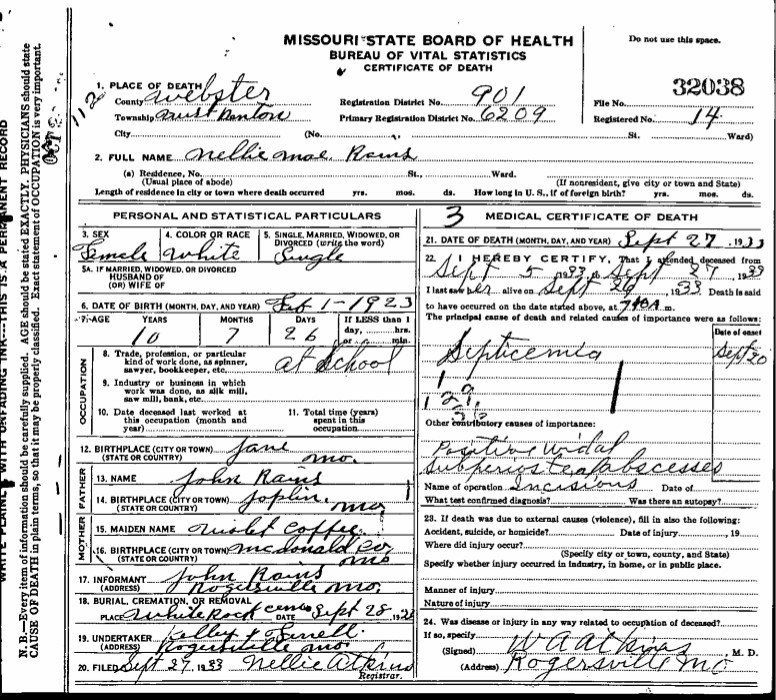 MISSOURI STATE BOARD OF HEALTH
BUREAU OF VITAL STATISTICS
CERTIFICATE OF DEATH
Do not use this space.
32038
1. PLACE OF DEATH
County Webster Registration District No. 901 File No.
Township Primary Registration District No. 6209 Registered No. 14
City (No. St. Ward)
2. FULL NAME Nellie Mae Rains
(a) Residence, No. St., Ward.
(Usual place of abode) (If nonresident, give city or town and State)
Length of residence in city or town where death occurred yrs. mos. ds. How long in U. S., if of foreign birth? yrs. mos. ds.
PERSONAL AND STATISTICAL PARTICULARS
3. SEX 4. COLOR OR RACE 5. SINGLE, MARRIED, WIDOWED, OR DIVORCED (write the word)
Female White Single
5A. IF MARRIED, WIDOWED, OR DIVORCED
HUSBAND OF
(OR) WIFE OF
6. DATE OF BIRTH (MONTH, DAY, AND YEAR) Feb 1-1923
7. AGE YEARS MONTHS DAYS If LESS than 1 day, hrs. or min.
10 7 26
OCCUPATION
8. Trade, profession, or particular kind of work done, as spinner, sawyer, bookkeeper, etc. at School
9. Industry or business in which work was done, as silk mill, saw mill, bank, etc.
10. Date deceased last worked at this occupation (month and year)
11. Total time (years) spent in this occupation
12. BIRTHPLACE (CITY OR TOWN) Jane
(STATE OR COUNTRY) Mo.
FATHER
13. NAME John Rains
14. BIRTHPLACE (CITY OR TOWN) Joplin,
(STATE OR COUNTRY) Mo
MOTHER
15. MAIDEN NAME Violet Coffee
16. BIRTHPLACE (CITY OR TOWN) McDonald Co
(STATE OR COUNTRY) Mo
17. INFORMANT John Rains
(ADDRESS) Rogersville Mo.
18. BURIAL, CREMATION, OR REMOVAL
PLACE White Rock Cem DATE Sept 28, 1933
19. UNDERTAKER Kelley
(ADDRESS) Rogersville Mo.
20. FILED Sept 27 1933 Nellie Atkins
Registrar.
3 MEDICAL CERTIFICATE OF DEATH
21. DATE OF DEATH (MONTH, DAY, AND YEAR) Sept 27, 1933
22. I HEREBY CERTIFY, That I attended deceased from
Sept 5 1933 to Sept 27, 1933
I last saw her alive on Sept 26 1933 Death is said
to have occurred on the date stated above, at m.
The principal cause of death and related causes of importance were as follows:
Date of onset
Septicemia Sept 20
Other contributory causes of importance:
Positive Widal
subperiosteal abscesses
Name of operation Incisions Date of
What test confirmed diagnosis? Was there an autopsy?
23. If death was due to external causes (violence), fill in also the following:
Accident, suicide, or homicide? Date of injury , 19
Where did injury occur?
(Specify city or town, county, and State)
Specify whether injury occurred in industry, in home, or in public place.
Manner of injury
Nature of injury
24. Was disease or injury in any way related to occupation of deceased?
If so, specify
(Signed) W A Atkins, M. D.
(Address) Rogersville Mo
N. B.—Every item of information should be carefully supplied. AGE should be stated EXACTLY. PHYSICIANS should state
CAUSE OF DEATH in plain terms, so that it may be properly classified. Exact statement of OCCUPATION is very important.
WRITE PLAINLY, WITH UNFADING INK---THIS IS A PERMANENT RECORD